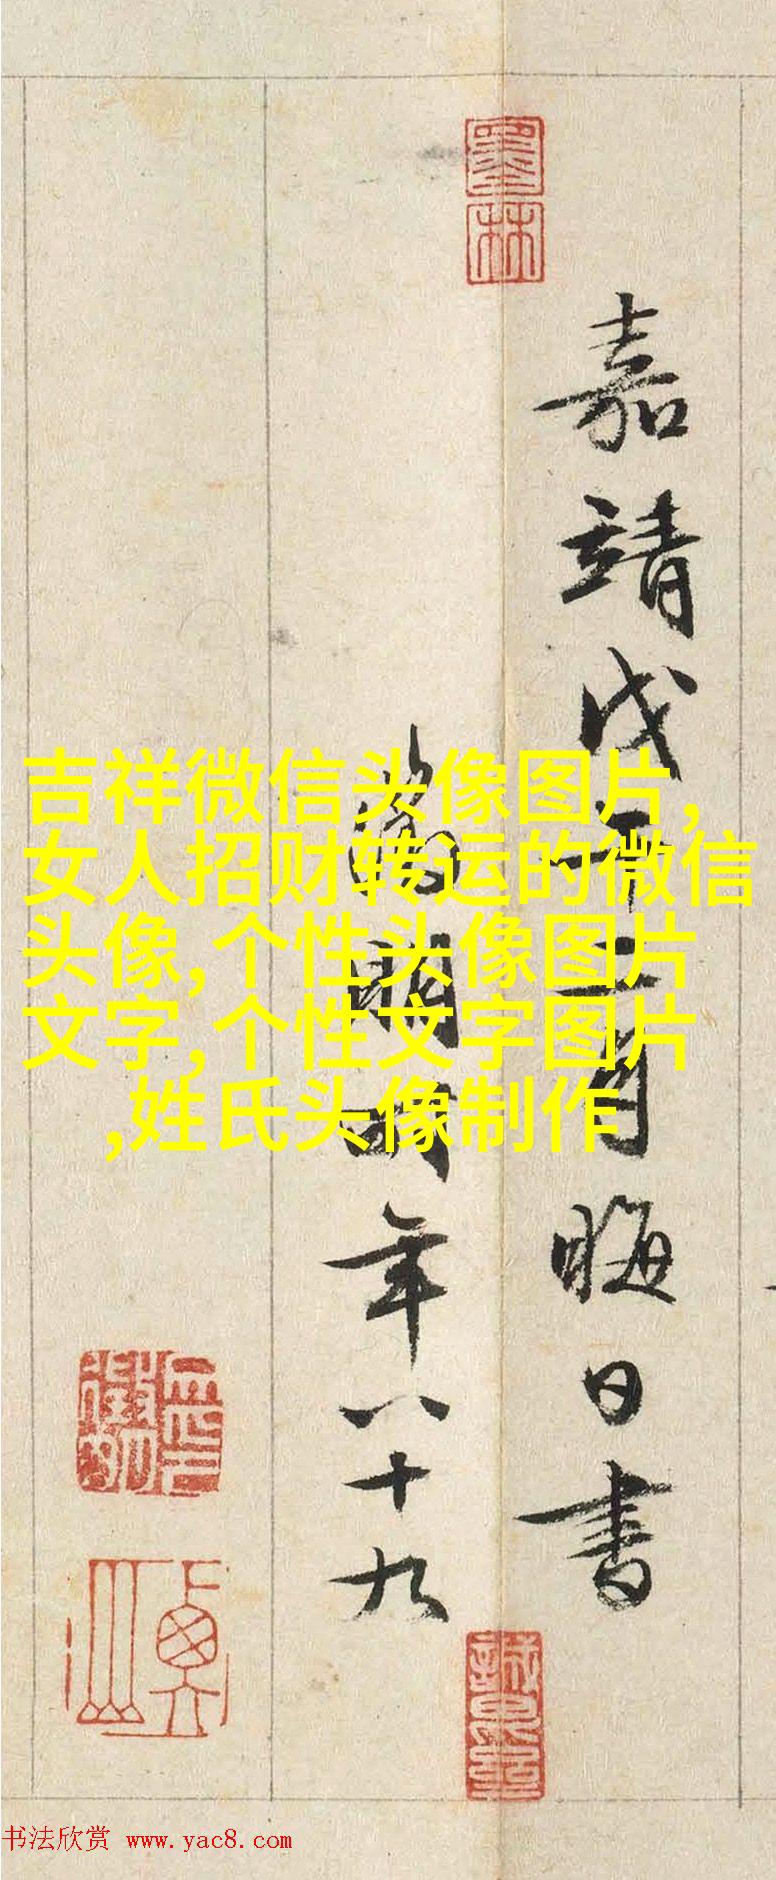 墨林
嘉靖戊午二月晦日書
徵明時年八十九
吉祥微信头像图片,
女人招财转运的微信
头像,个性头像图片
文字,个性文字图片
,姓氏头像制作
书法欣赏 www.yac8.com